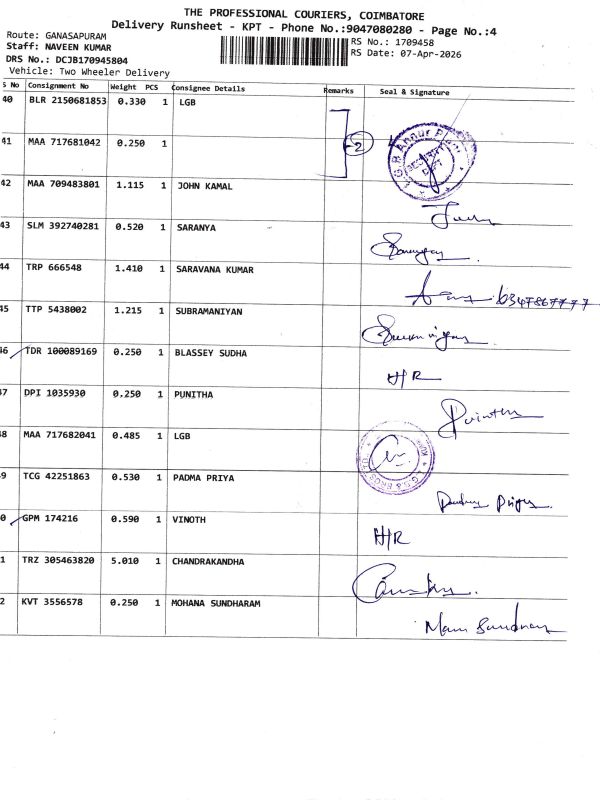 THE PROFESSIONAL COURIERS, COIMBATORE
Delivery Runsheet - KPT - Phone No.:9047080280 - Page No.:4
Route: GANASAPURAM
Staff: NAVEEN KUMAR
RS No.: 1709458
DRS No.: DCJB170945804
RS Date: 07-Apr-2026
Vehicle: Two Wheeler Delivery
S No Consignment No Weight PCS Consignee Details Remarks Seal & Signature
40 BLR 2150681853 0.330 1 LGB
2
41 MAA 717681042 0.250 1
42 MAA 709483801 1.115 1 JOHN KAMAL
43 SLM 392740281 0.520 1 SARANYA
44 TRP 666548 1.410 1 SARAVANA KUMAR
45 TTP 5438002 1.215 1 SUBRAMANIYAN
46 TDR 100089169 0.250 1 BLASSEY SUDHA H/R
47 DPI 1035930 0.250 1 PUNITHA
48 MAA 717682041 0.485 1 LGB
9 TCG 42251863 0.530 1 PADMA PRIYA
0 GPM 174216 0.590 1 VINOTH H/R
1 TRZ 305463820 5.010 1 CHANDRAKANDHA
2 KVT 3556578 0.250 1 MOHANA SUNDHARAM